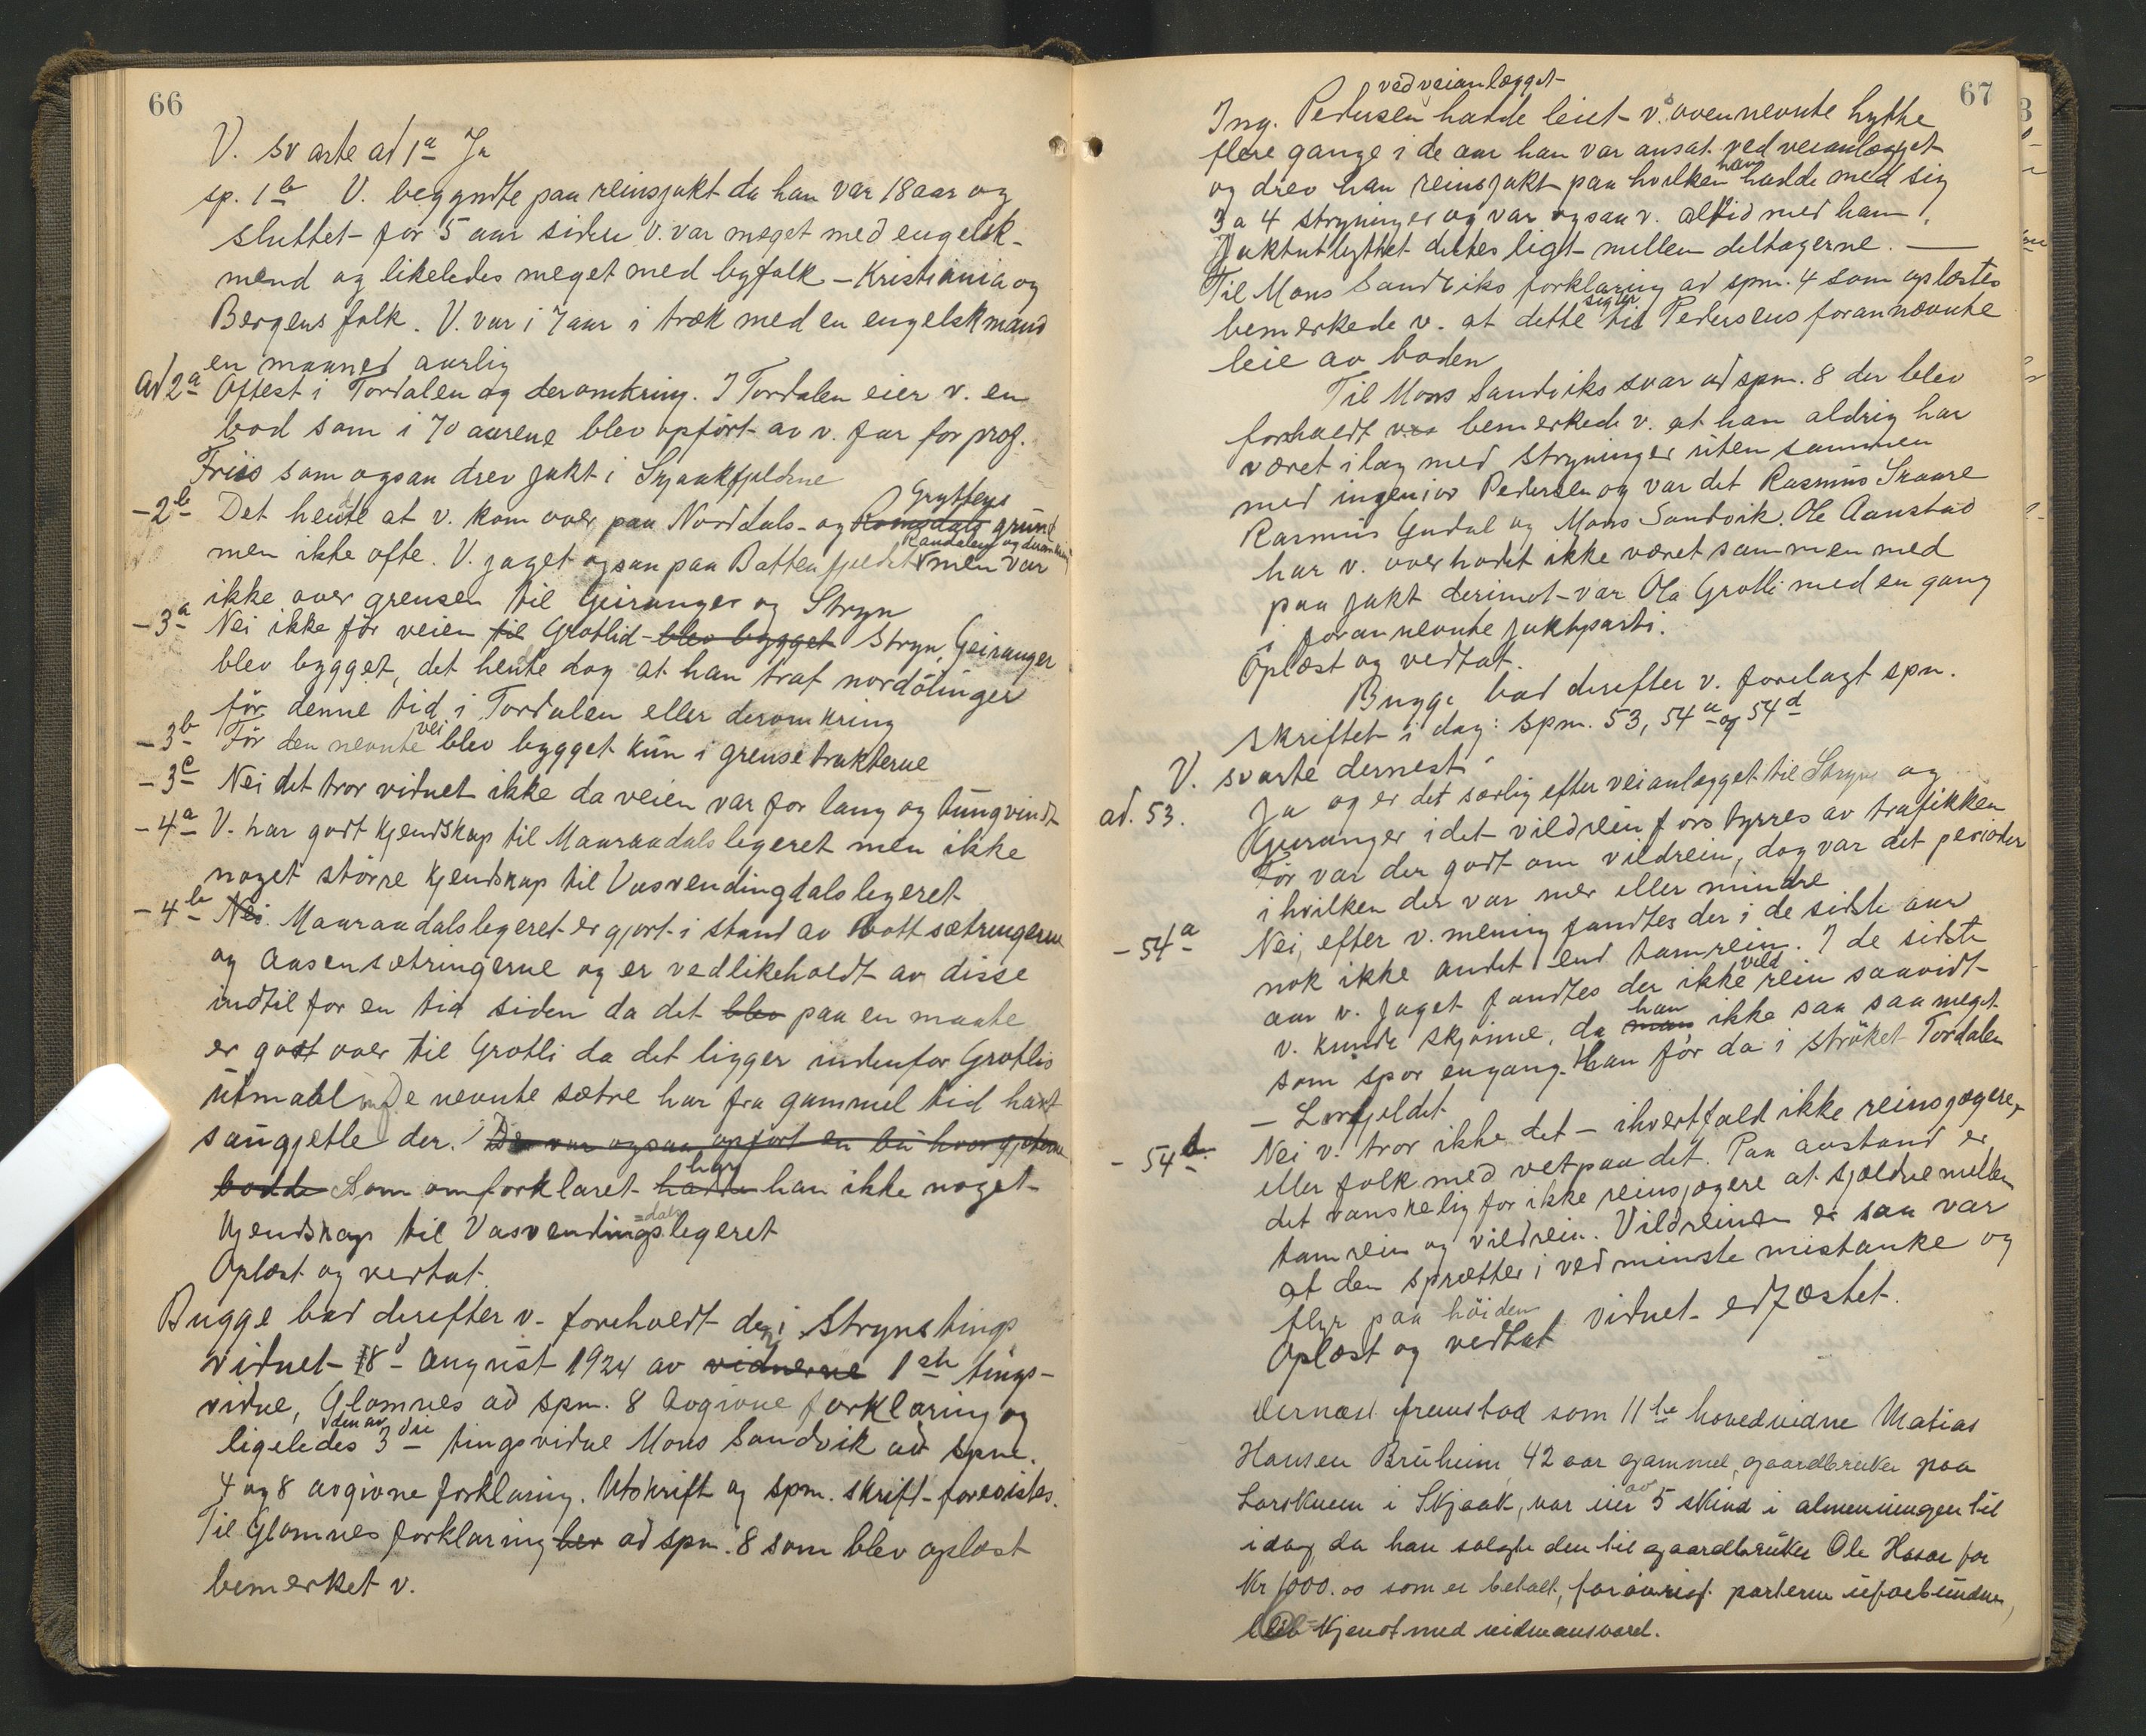 66
V. svarte ad 1a Ja
sp. 1b V. begyndte paa reinsjakt da han var 18 aar og
sluttet for 5 aar siden V. var meget med engelsk-
mend og likeledes meget med byfolk - Kristiania og
Bergens folk. V. var i 7 aar i træk med en engelskmand
en maaned aarlig
Ad 2a Oftest i Tordalen og deromkring. I Tordalen eier v. en
bod som i 70 aarene blev opført av v. far for prof.
Friis som ogsaa drev jakt i Skjaakfjeldene
Gryttens
- 2b Det hendte at v. kom over paa Norddals- og Romsdals grund
Raudalen og deromkring
men ikke ofte. V. jaget ogsaa paa Battenfjeldet men var
ikke over grensen til Geiranger og Stryn
- 3a Nei ikke før veien til Grotlid - blev bygget Stryn, Geiranger
blev bygget, det hente dog at han traf nordølinger
før denne tid i Tordalen eller deromkring
vei
- 3b Før den nevnte blev bygget kun i grensetrakterne
- 3c Nei det tror vidnet ikke da veien var for lang og tungvindt
- 4a V. har godt kjendskap til Maaraadalslegeret men ikke
noget større kjendskap til Vasvendingdalslegeret
- 4b Nei. Maaraadalslegeret er gjort i stand av Bottsætringerne
og Aasensætringerne og er vedlikeholdt av disse
indtil for en tid siden da det blev paa en maate
er gaat over til Grotli da det ligger indenfor Grotlis
utmaal De nevnte sætre har fra gammel tid havt
saugjetle der. Der var ogsaa opført en bu hvor gjeterne
har
bodde Som omforklaret hadde han ikke noget
dals
kjendskap til Vasvendingslegeret
Oplæst og vedtat.
Bugge bad derefter v. foreholdt den i Stryns tings
vidnet 18 august 1924 av vidnerne 1ste tings-
vidne, Glomnes ad spm. 8 avgivne forklaring og
den av
ligeledes 3die tingsvidne Mons Sandvik ad spm.
4 og 8 avgivne forklaring. Utskrift og spm. skrift forevistes.
Til Glomnes forklaring her ad spm. 8 som blev oplæst
bemerket v.
67
ved veianlægget
Ing. Pedersen hadde leiet v.s ovennevnte hytte
flere gange i de aar han var ansat ved veianlægget
han
og drev han reinsjakt paa hvilken hadde med sig
3 a 4 stryninger og var ogsaa v. altid med ham.
Jaktutbyttet deltes ligt mellem deltagerne.
Til Mons Sandviks forklaring ad spm. 4 som oplæstes
sigter
bemerkede v. at dette til Pedersens forannævnte
leie av boden
Til Mons Sandviks svar ad spm. 8 der blev
foreholdt bemerkede v. at han aldrig har
været i lag med stryninger uten sammen
med ingeniør Pedersen og var det Rasmus Skaare
Rasmus Gudal og Mons Sandvik. Ole Aanstad
har v. overhodet ikke været sammen med
paa jakt derimot var Ola Grotli med en gang
i forannevnte jaktparti.
Oplæst og vedtat.
Bugge bad derefter v. forelagt spm.
skriftet i dag: spm. 53, 54a og 54d
V. svarte dernest:
ad. 53. Ja og er det særlig efter veianlægget til Stryn og
Geiranger idet vildrein forstyrres av trafikken
Før var der godt om vildrein, dog var det perioder
i hvilken der var mer eller mindre
- 54a Nei, efter v. mening fandtes der i de sidste aar
nok ikke andet end tamrein. I de sidste
vild
aar v. jaget fandtes der ikke rein saavidt
han
v. kunde skjønne, da man ikke saa saa meget
som spor engang. Han før da i strøket Tordalen
- Lorfjeldet
- 54d. Nei v. tror ikke det - ihvertfald ikke reinsjægere,
eller folk med vet paa det. Paa avstand er
det vanskelig for ikke reinsjægere at sjældne mellem
tamrein og vildrein. Vildreinen er saa var
at den sprætter i ved minste mistanke og
flyr paa høiden
Oplæst og vedtat vidnet edfæstet.
Dernæst fremstod som 11te hovedvidne Matias
Hansen Bruheim 42 aar gammel, gaardbruker paa
av
Larskuen i Skjaak, var eier 5 skind i almenningen til
idag da han solgte den til gaardbruker Ole Hosar for
Kr 1000.00 som er betalt, forøvrigt parterne uforbunden,
blev kjendt med vidneansvaret.